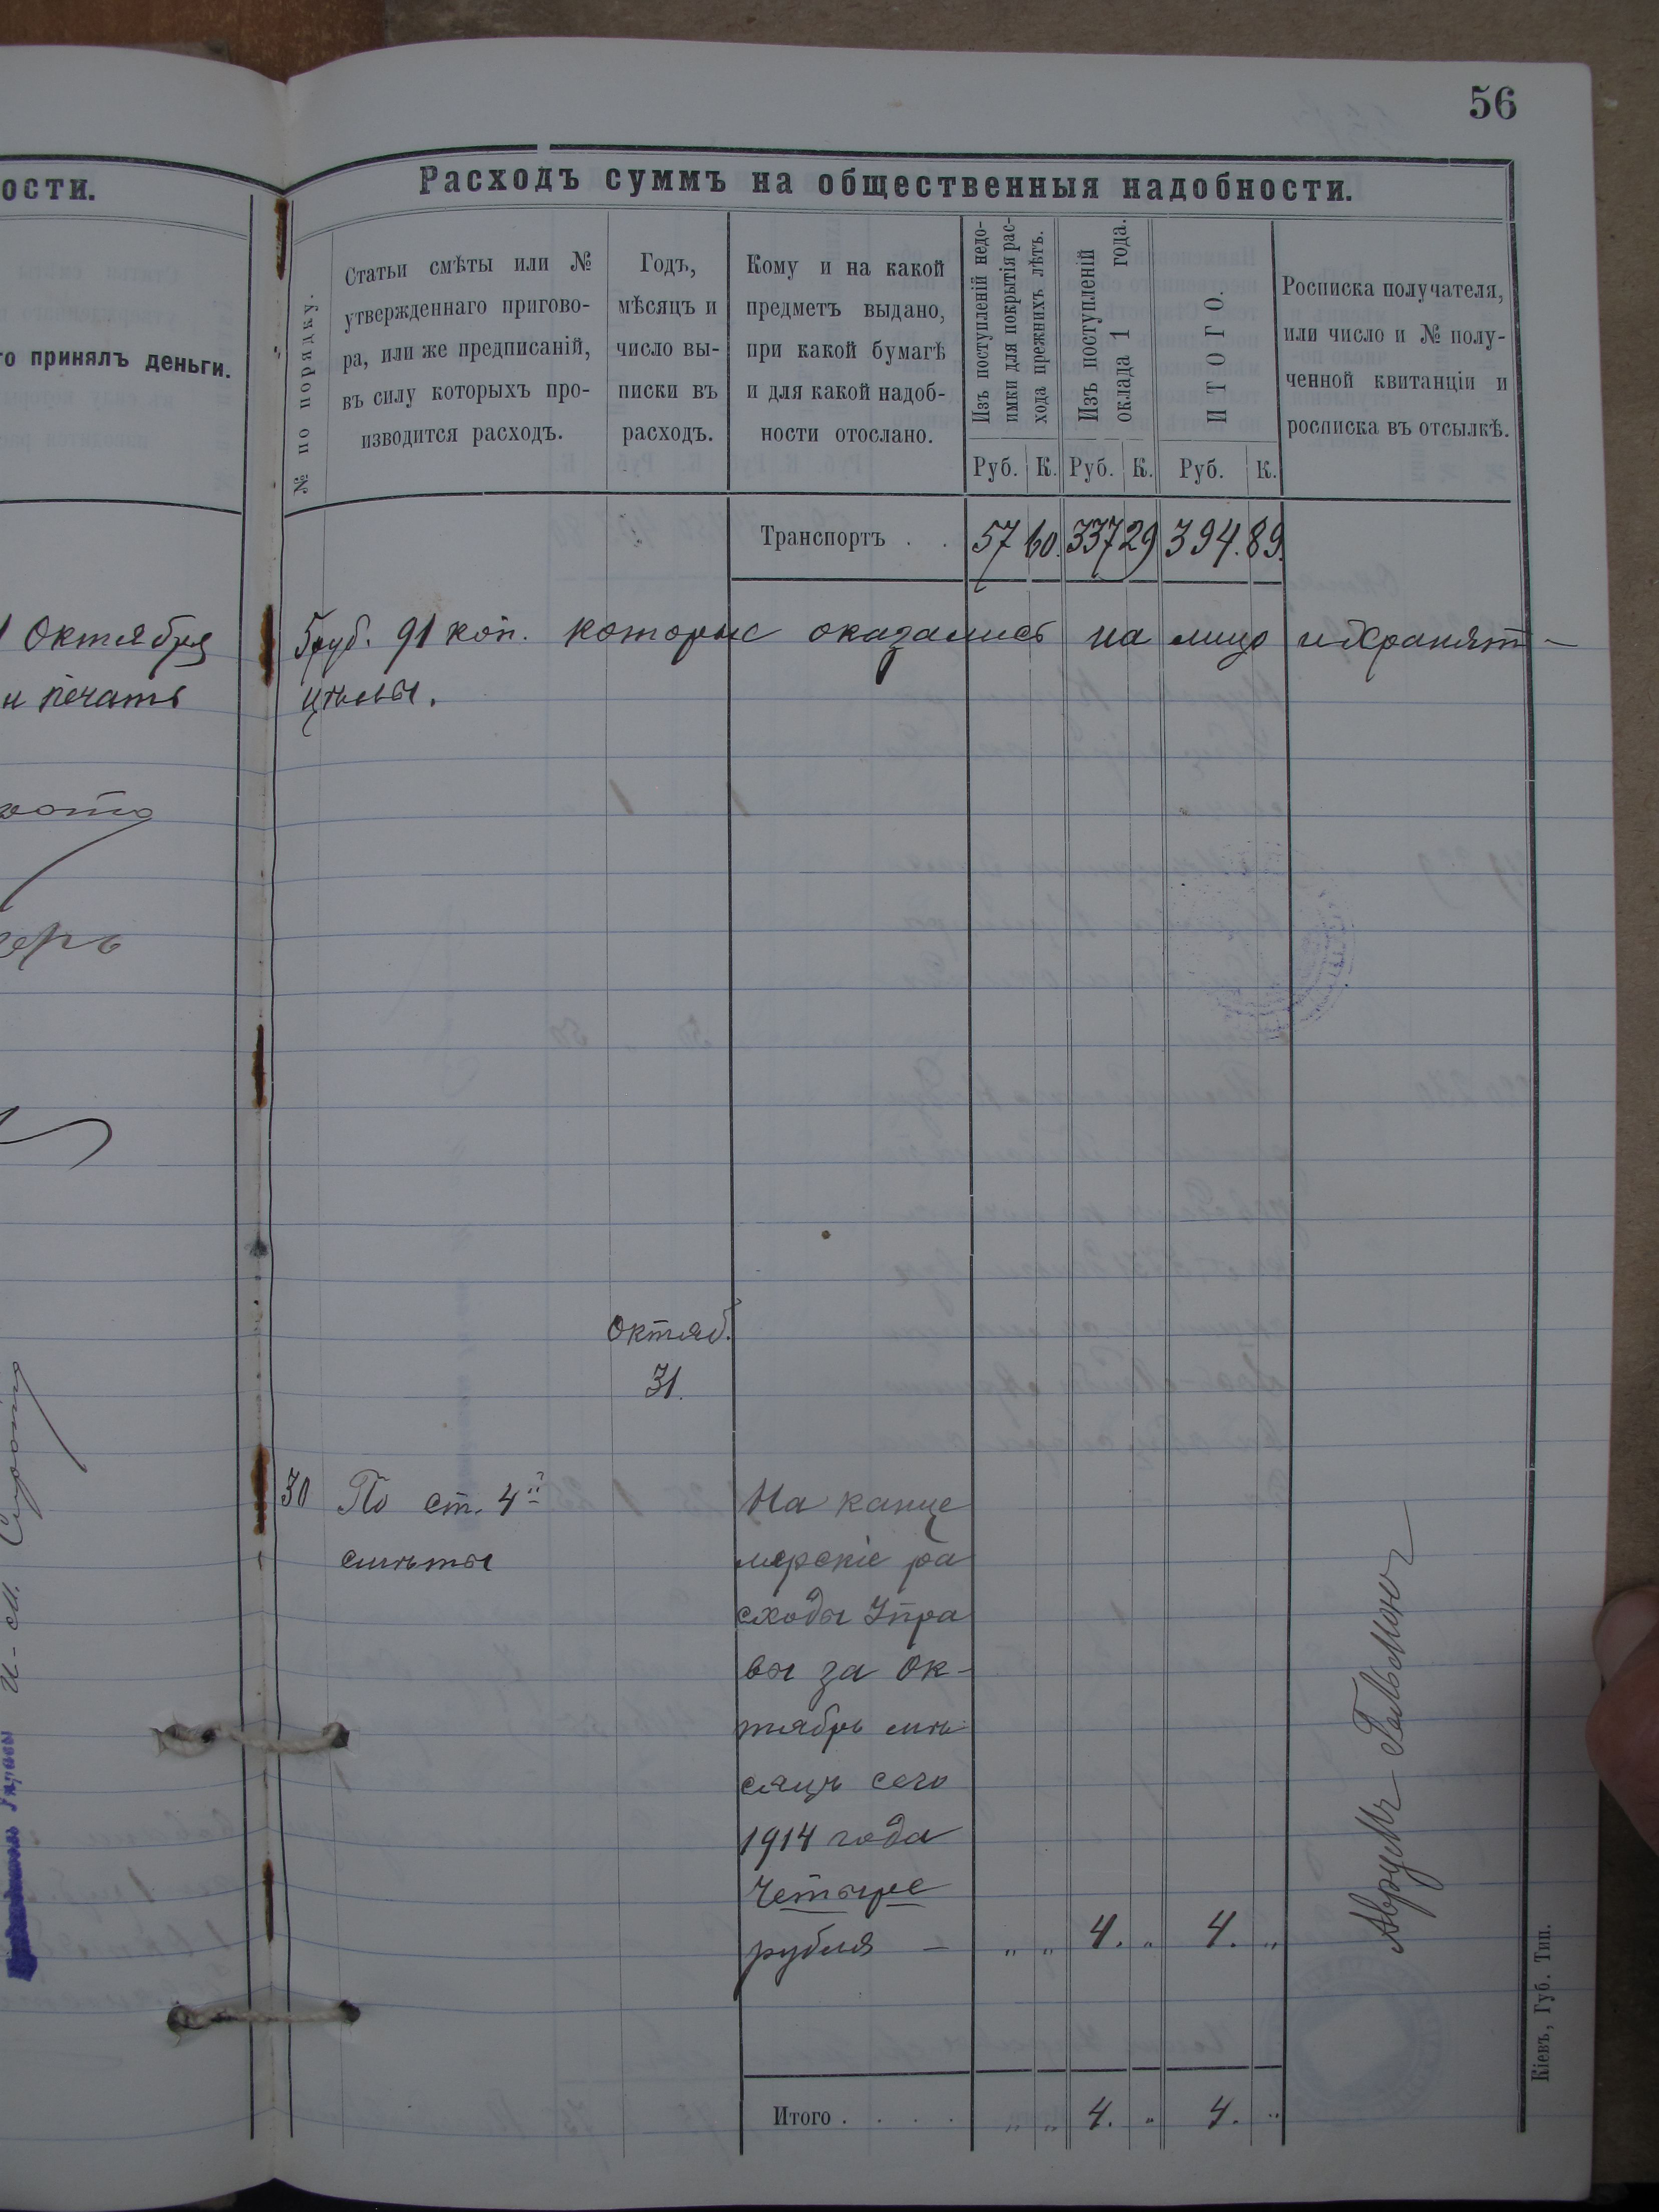 56
ости.
го принялъ деньги.
1 Октября
и печать
Расходъ суммъ на общественныя надобности.
№ по порядку.
Статьи смѣты или №
утвержденнаго пригово-
ра, или же предписаній,
въ силу которыхъ про-
изводится расходъ.
Годъ,
мѣсяцъ и
число вы-
писки въ
расходъ.
Кому и на какой
предметъ выдано,
при какой бумагѣ
и для какой надоб-
ности отослано.
Изъ поступленій недо-
имки для покрытія рас-
хода прежнихъ лѣтъ.
Изъ поступленій
оклада 1 года.
ИТОГО.
Росписка получателя,
или число и № полу-
ченной квитанціи и
росписка въ отсылкѣ.
Руб. К. Руб. К. Руб. К.
Транспортъ . . 57 60. 337 29 394. 89.
5 руб. 91 коп. которые оказались на лицо и хранят-
цѣлы.
Октяб.
31.
30 По ст. 4й На канце
смѣты лярскіе ра
сходы Упра
вы за Ок-
тябрь мѣ
сяцъ сего
1914 года
Четыре
рубля — „ „ 4. „ 4. „
Аврумъ Гольмонъ
Итого . . . . „ „ 4. „ 4. „
Кіевъ, Губ. Тип.